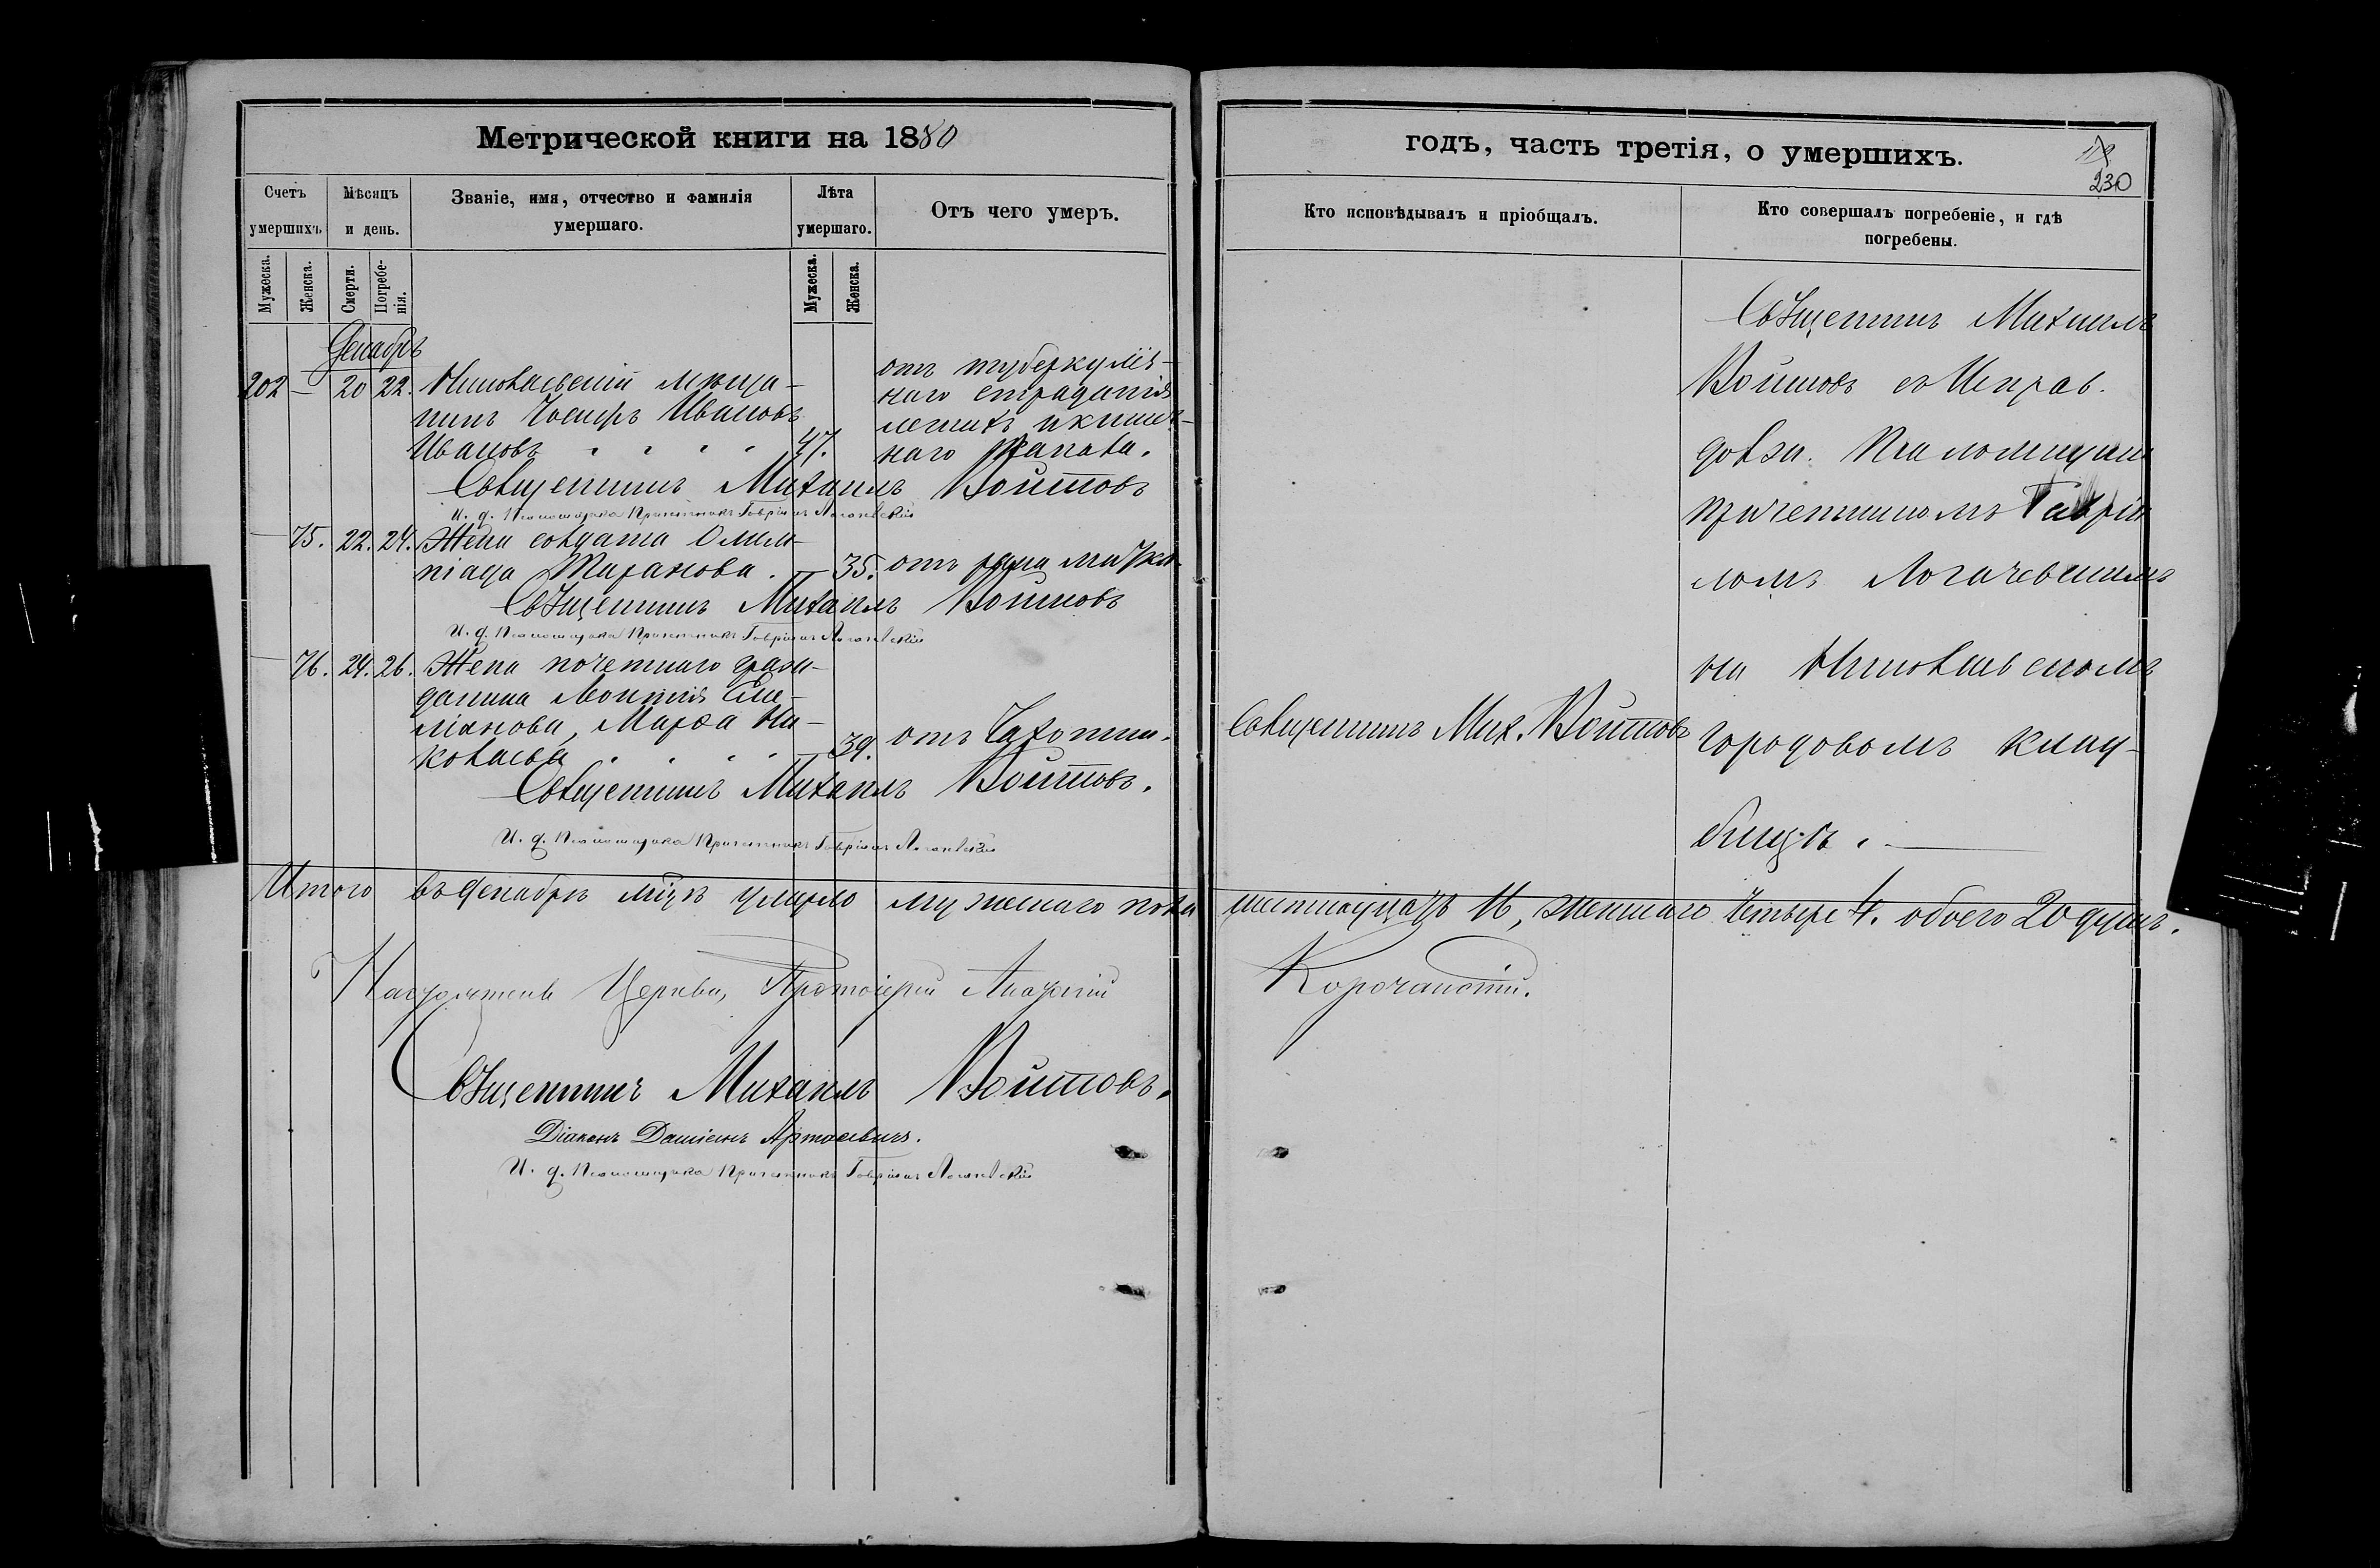 Метрической книги на 1880
Счетъ умершихъ.
Мѣсяцъ и день.
Званіе, имя, отчество и фамилія умершаго.
Лѣта умершаго.
Отъ чего умеръ.
Мужеска.
Женска.
Смерти.
Погребенія.
Мужеска.
Женска.
Декабрь
202 — 20 22. Николаевскій мѣща-
нинъ Іосифъ Ивановъ
Ивановъ 47.
отъ туберкулёз-
наго страданія
легкихъ и кишеч-
наго канала.
Священникъ Михаилъ Войтовъ
И. д. Псаломщика Причетникъ Гавріилъ Логачевскій
— 75. 22. 24. Жена солдата Олим-
піада Таранова. — 35. отъ рака матки.
Священникъ Михаилъ Войтовъ
И. д. Псаломщика Причетникъ Гавріилъ Логачевскій
— 76. 24. 26. Жена почетнаго граж-
данина Леонтія Еме-
ліанова, Марѳа Ни-
колаева — 39. отъ Чахотки.
Священникъ Михаилъ Войтовъ.
И. д. Псаломщика Причетникъ Гавріилъ Логачевскій
Итого въ декабрѣ м͠цѣ умерло мужескаго пола
Настоятель Церкви, Протоіерей
Священникъ Михаилъ Войтовъ.
Діаконъ Даміанъ
И. д. Псаломщика Причетникъ Гавріилъ Логачевскій
годъ, часть третія, о умершихъ.
230
Кто исповѣдывалъ и пріобщалъ.
Кто совершалъ погребеніе, и гдѣ погребены.
Священникъ Михаилъ
Войтовъ съ Исправ.
долж. Псаломщика
причетникомъ Гаврі-
ломъ Логачевскимъ
на Николаевскомъ
городовомъ клад-
бищѣ.
Священникъ Мих. Войтовъ
шестнадцать 16, женскаго четыре 4. обоего 20 душъ.
Корочанскій.